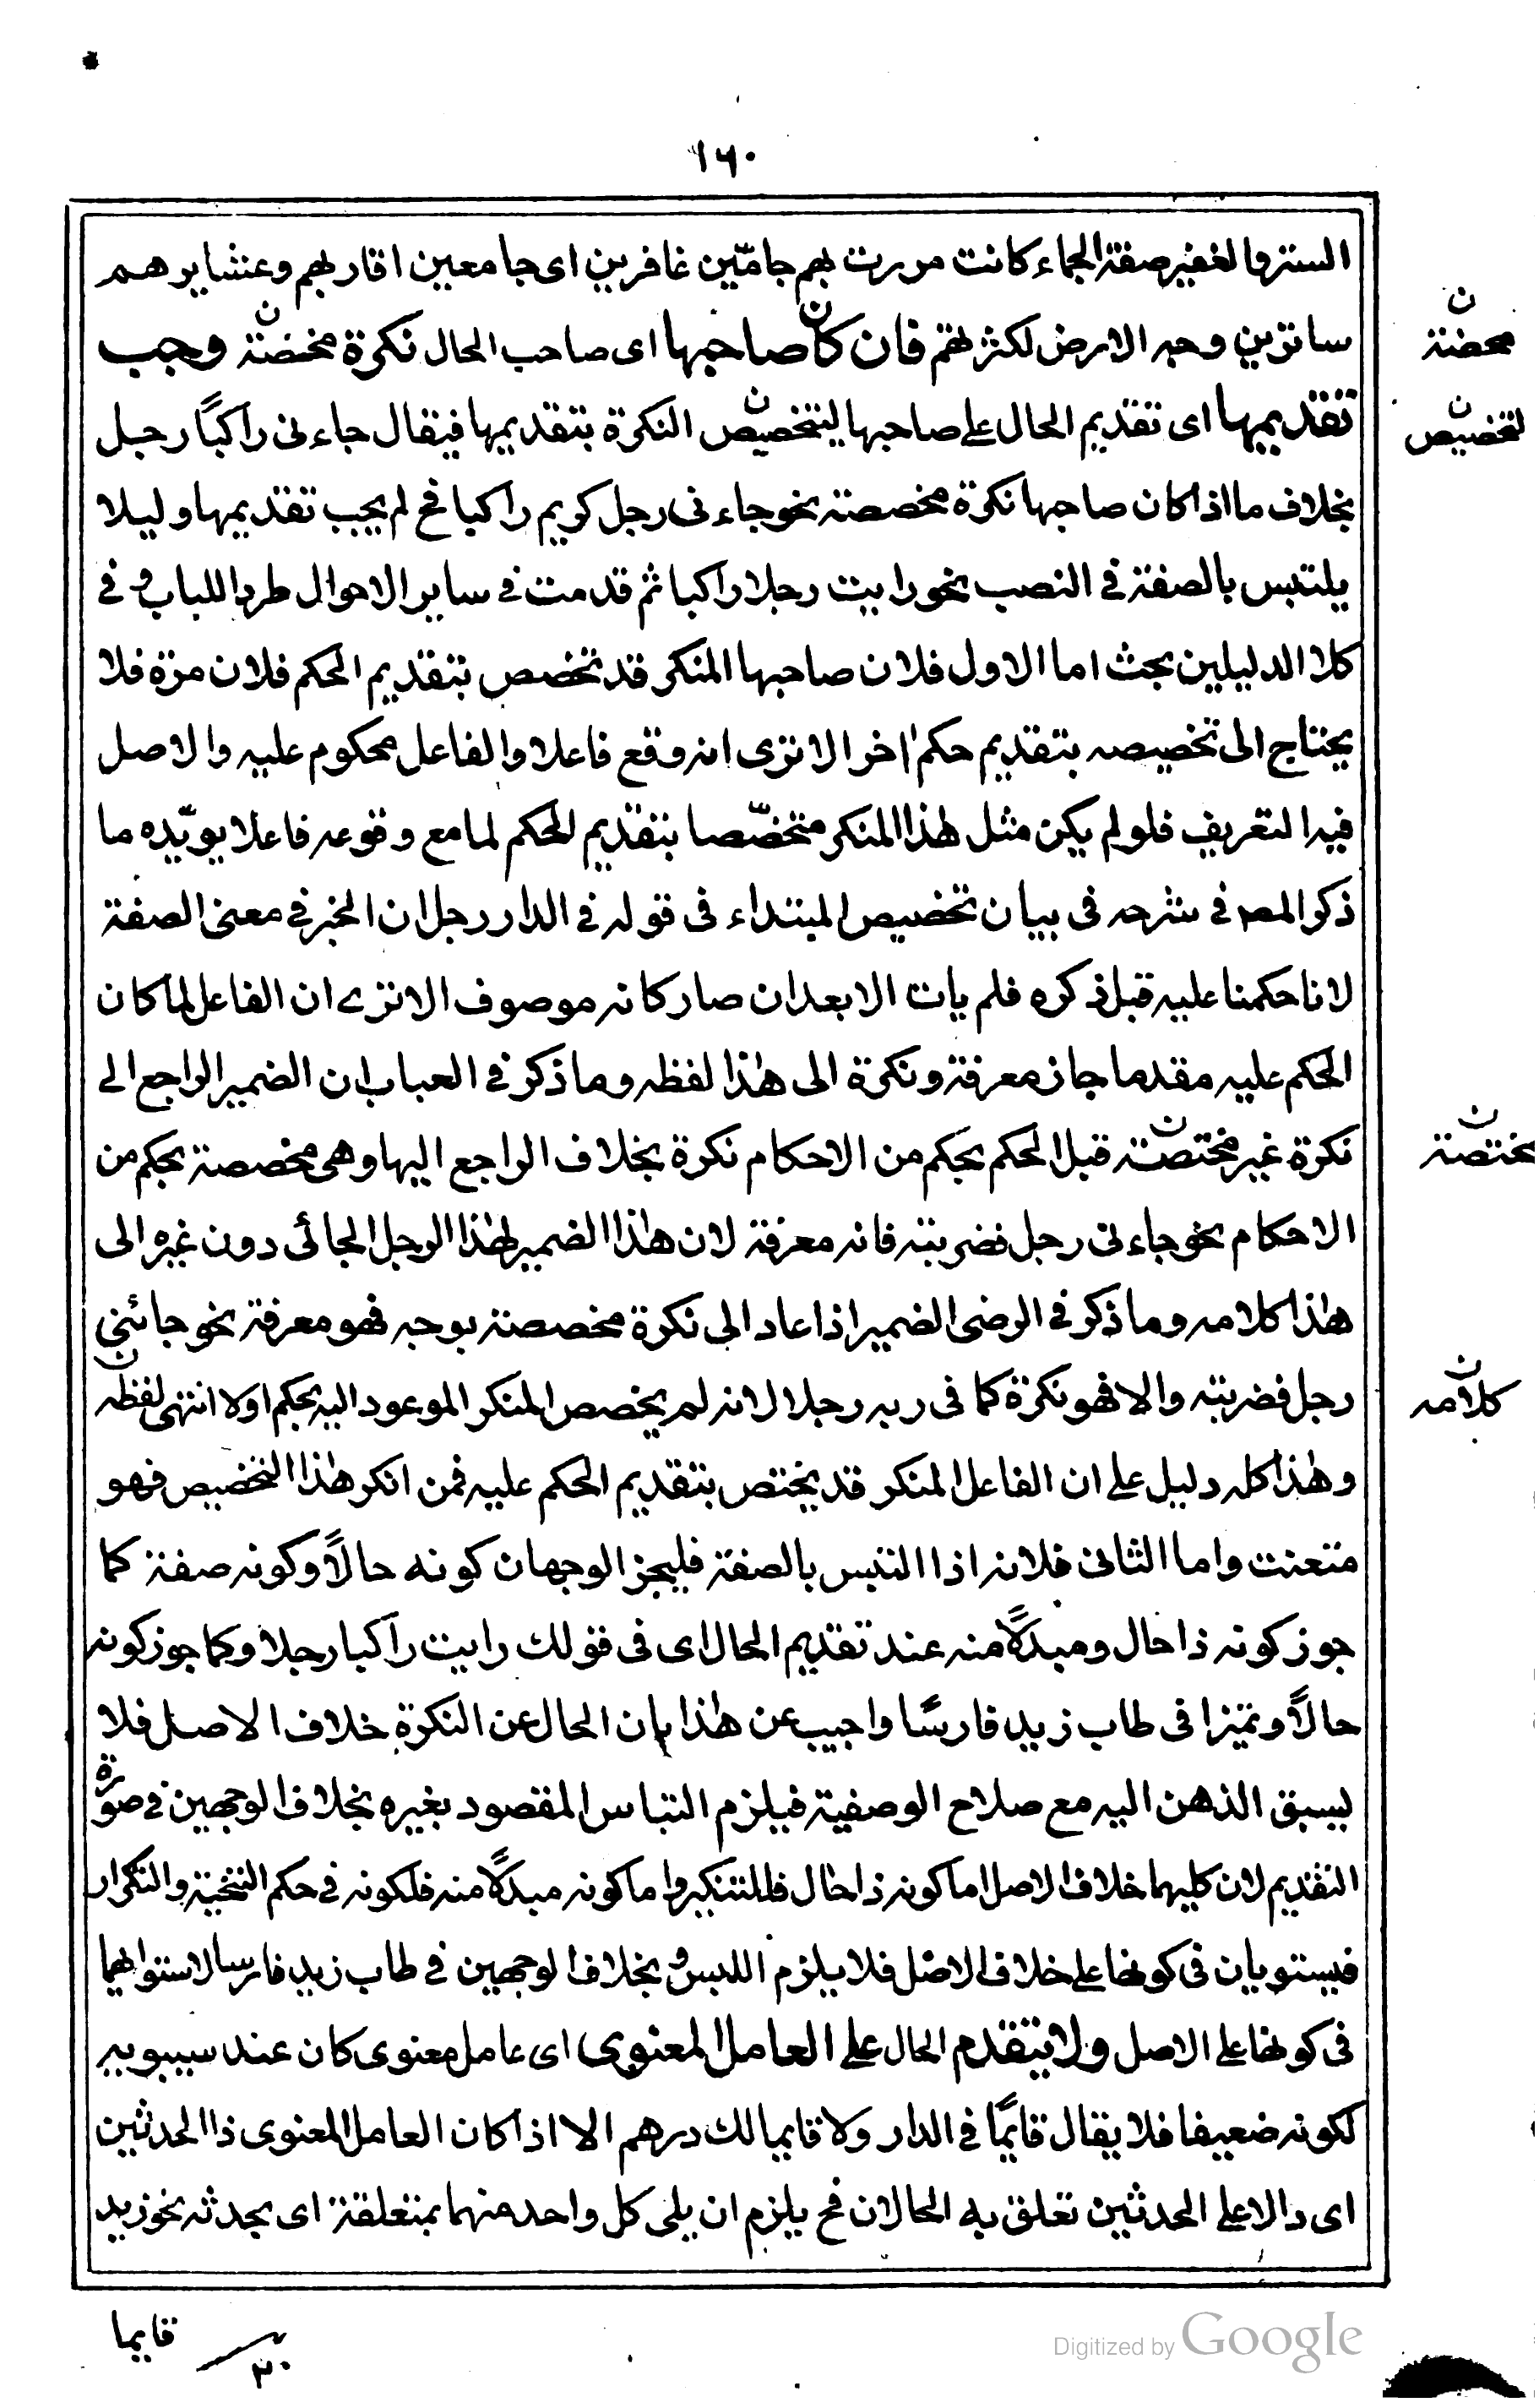 ١٦٠
الستر والغفير صفة الجماء كانت مررت بهم جامّين غافرين اى جامعين اقاربهم وعشايرهم
ساترين وجه الارض لكثرتهم فان كان صاحبها اى صاحب الحال نكرة محضة وجب
محضة ن
تقديمها اى تقديم الحال على صاحبها ليتخصيص النكرة بتقديمها فيقال جاءنى راكبًا رجل
لتخصيص ن
بخلاف ما اذا كان صاحبها نكرة مخصصة نحو جاءنى رجل كريم راكبا فح لم يجب تقديمها وليلا
يلتبس بالصفة في النصب نحو رايت رجلا راكبا ثم قدمت في ساير الاحوال طردا للباب و في
كلا الدليلين بحث اما الاول فلان صاحبها المنكر قد تخصص بتقديم الحكم فلان مرة فلا
يحتاج الى تخصيصه بتقديم حكم اخر الا ترى انه وقع فاعلا والفاعل محكوم عليه والاصل
فيه التعريف فلو لم يكن مثل هذا المنكر متخصّصا بتقديم الحكم لما مع وقوعه فاعلا يويّده ما
ذكر المصـ في شرحه فى بيان تخصيص المبتداء فى قوله في الدار رجل ان الخبر في معنى الصفة
لانا حكمنا عليه قبل ذكره فلم يات الا بعد ان صار كانه موصوف الا ترے ان الفاعل لما كان
الحكم عليه مقدما جاز معرفة ونكرة الى هذا لفظه وما ذكر في العباب ان الضمير الراجع الے
نكرة غير مختصة قبل الحكم بحكم من الاحكام نكرة بخلاف الراجع اليها وهى مخصصة بحكم من
مختصة ن
الاحكام نحو جاءنى رجل فضربته فانه معرفة لان هذا الضمير لهذا الرجل الجائى دون غيره الى
هذا كلامه وما ذكر في الرضى الضمير اذا عاد الى نكرة مخصصة بوجه فهو معرفة نحو جائنى
رجل فضربته والا فهو نكرة كما فى ربه رجلا لانه لم يخصص المنكر الموعود اليه بحكم اولا انتهى لفظه
كلامه ن
وهذا كله دليل على ان الفاعل المنكر قد يختص بتقديم الحكم عليه فمن انكر هذا التخصيص فهو
متعنت واما الثانى فلانه اذا التبس بالصفة فليجز الوجهان كونه حالًا وكونه صفة كما
جوز كونه ذا حال ومبدلًا منه عند تقديم الحال اى فى قولك رايت راكبا رجلا وكما جوز كونه
حالًا وتميزا فى طاب زيد فارسًا واجيب عن هذا بان الحال عن النكرة خلاف الاصل فلا
يسبق الذهن اليه مع صلاح الوصفية فيلزم التباس المقصود بغيره بخلاف الوجهين في صورة
التقديم لان كليهما خلاف الاصل اما كونه ذا حال فللتنكير واما كونه مبدلًا منه فلكونه في حكم التنحية والتكرار
فيستويان فى كونهما على خلاف الاصل فلا يلزم اللبس و بخلاف الوجهين في طاب زيد فارسا لاستوائهما
فى كونهما على الاصل ولا يتقدم الحال على العامل المعنوى اى عامل معنوى كان عند سيبويه
لكونه ضعيفا فلا يقال قايمًا في الدار ولا قايما لك درهم الا اذا كان العامل المعنوى ذا الحدثين
اى دالا على الحدثين تعلق به الحالان فح يلزم ان يلى كل واحد منهما بمتعلقة اى بحدثه نحو زيد
قايما
٣٠
Digitized by Google